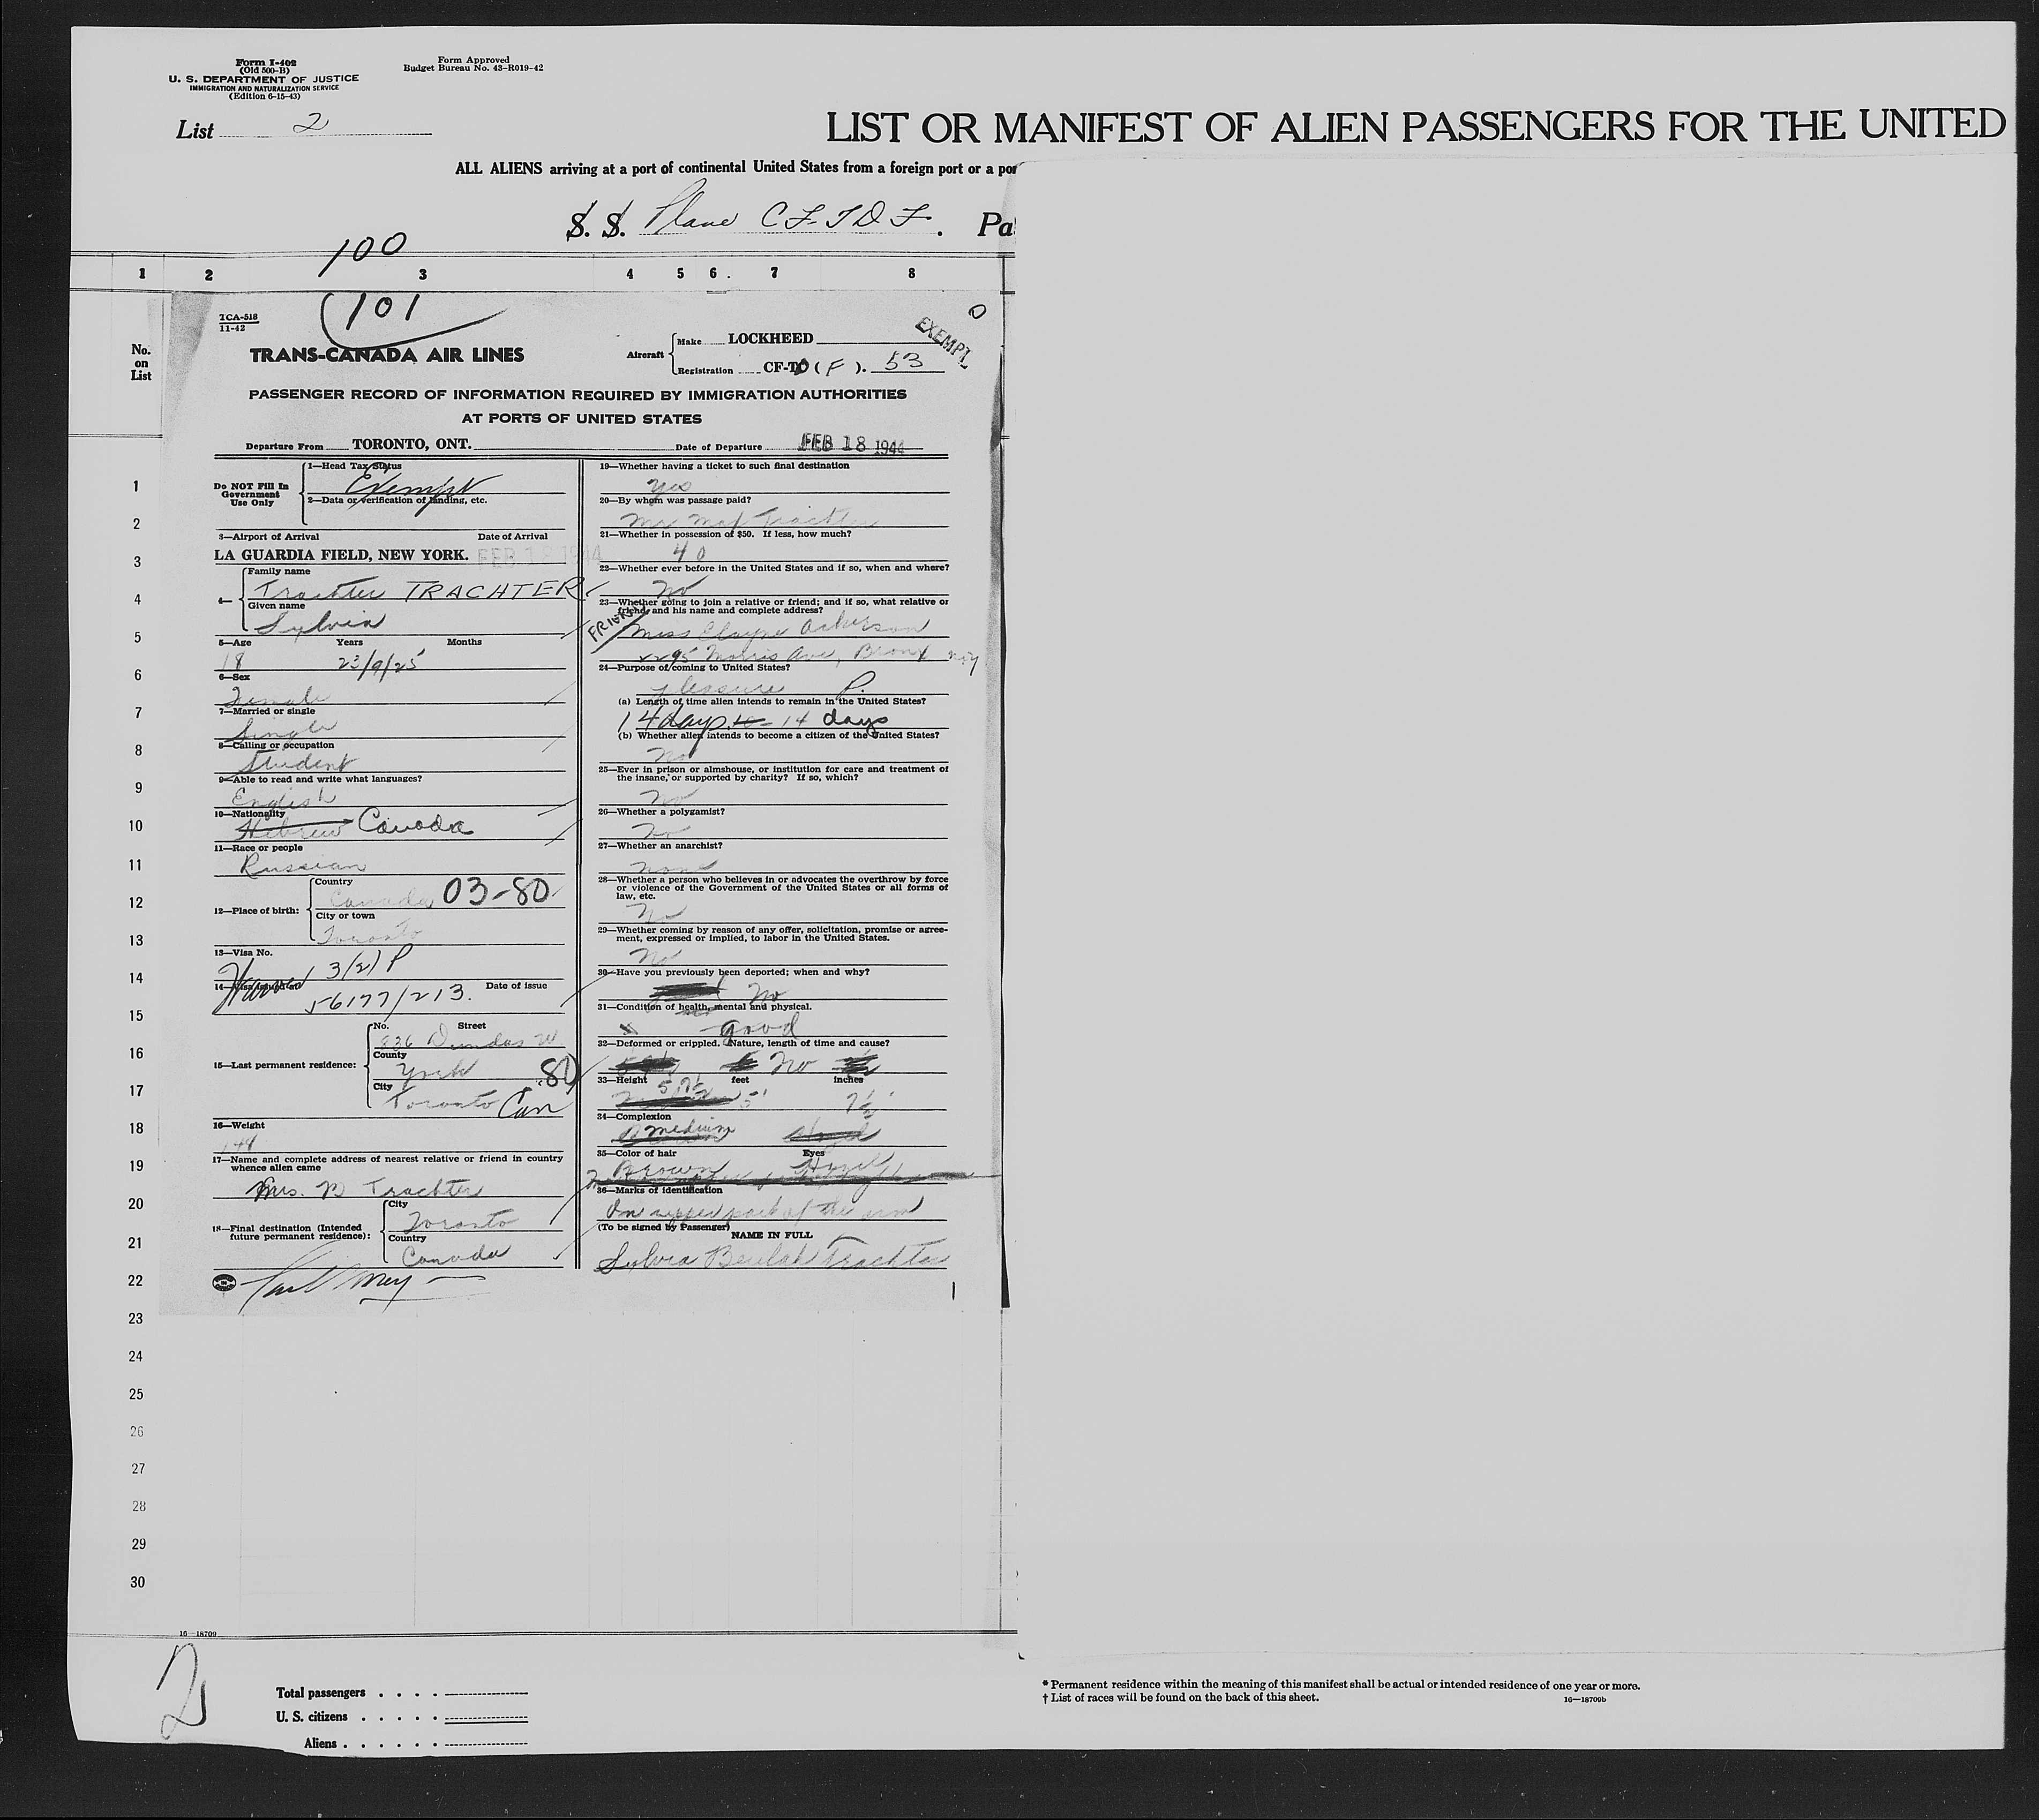 Form I-402
(Old 500-B)
U. S. DEPARTMENT OF JUSTICE
IMMIGRATION AND NATURALIZATION SERVICE
(Edition 6-15-43)
Form Approved
Budget Bureau No. 43-R019-42
List 2
LIST OR MANIFEST OF ALIEN PASSENGERS FOR THE UNITED
ALL ALIENS arriving at a port of continental United States from a foreign port or a por
S. S. Plane CF-TDF. Pa
100
1 2 3 4 5 6. 7 8
No. on List
101
TCA-518
11-42
TRANS-CANADA AIR LINES
Aircraft
Make LOCKHEED
Registration CF-TD (F). 53
EXEMPT
PASSENGER RECORD OF INFORMATION REQUIRED BY IMMIGRATION AUTHORITIES
AT PORTS OF UNITED STATES
Departure From TORONTO, ONT. Date of Departure FEB 18 1944
Do NOT Fill In
Government
Use Only
1—Head Tax Status
Exempt
2—Data or verification of landing, etc.
3—Airport of Arrival Date of Arrival
LA GUARDIA FIELD, NEW YORK. FEB 18 1944
4—
Family name
Trachter TRACHTER
Given name
Sylvia
5—Age Years Months
18 23/9/25
6—Sex
Female
7—Married or single
Single
8—Calling or occupation
Student
9—Able to read and write what languages?
English
10—Nationality
Hebrew Canada
11—Race or people
Russian
12—Place of birth:
Country
Canada 03-80
City or town
Toronto
13—Visa No.
3(2) P
14—Visa issued at Date of issue
56177/213.
15—Last permanent residence:
No. Street
Dundas W
County
York 80
City
Toronto Can
16—Weight
148
17—Name and complete address of nearest relative or friend in country
whence alien came
Mrs. B Trachter
18—Final destination (Intended
future permanent residence):
City
Toronto
Country
Canada
19—Whether having a ticket to such final destination
Yes
20—By whom was passage paid?
Mr Max Trachter
21—Whether in possession of $50. If less, how much?
40
22—Whether ever before in the United States and if so, when and where?
No
23—Whether going to join a relative or friend; and if so, what relative or
friend and his name and complete address?
FRIEND
Miss Elayne Ackerson
2295 Morris Ave, Bronx N.Y
24—Purpose of coming to United States?
pleasure P.
(a) Length of time alien intends to remain in the United States?
14 days 14 days
(b) Whether alien intends to become a citizen of the United States?
No
25—Ever in prison or almshouse, or institution for care and treatment of
the insane, or supported by charity? If so, which?
No
26—Whether a polygamist?
No
27—Whether an anarchist?
None
28—Whether a person who believes in or advocates the overthrow by force
or violence of the Government of the United States or all forms of
law, etc.
No
29—Whether coming by reason of any offer, solicitation, promise or agree-
ment, expressed or implied, to labor in the United States.
No
30—Have you previously been deported; when and why?
No
31—Condition of health, mental and physical.
good
32—Deformed or crippled. Nature, length of time and cause?
No
33—Height feet inches
5' 7½"
34—Complexion
medium
35—Color of hair Eyes
Brown Hazel
36—Marks of identification
On upper part of the arm
(To be signed by Passenger)
NAME IN FULL
Sylvia Beulah Trachter
1
2
3
4
5
6
7
8
9
10
11
12
13
14
15
16
17
18
19
20
21
22
23
24
25
26
27
28
29
30
16—18709
2
Total passengers
U. S. citizens
Aliens
* Permanent residence within the meaning of this manifest shall be actual or intended residence of one year or more.
† List of races will be found on the back of this sheet. 16—18709b